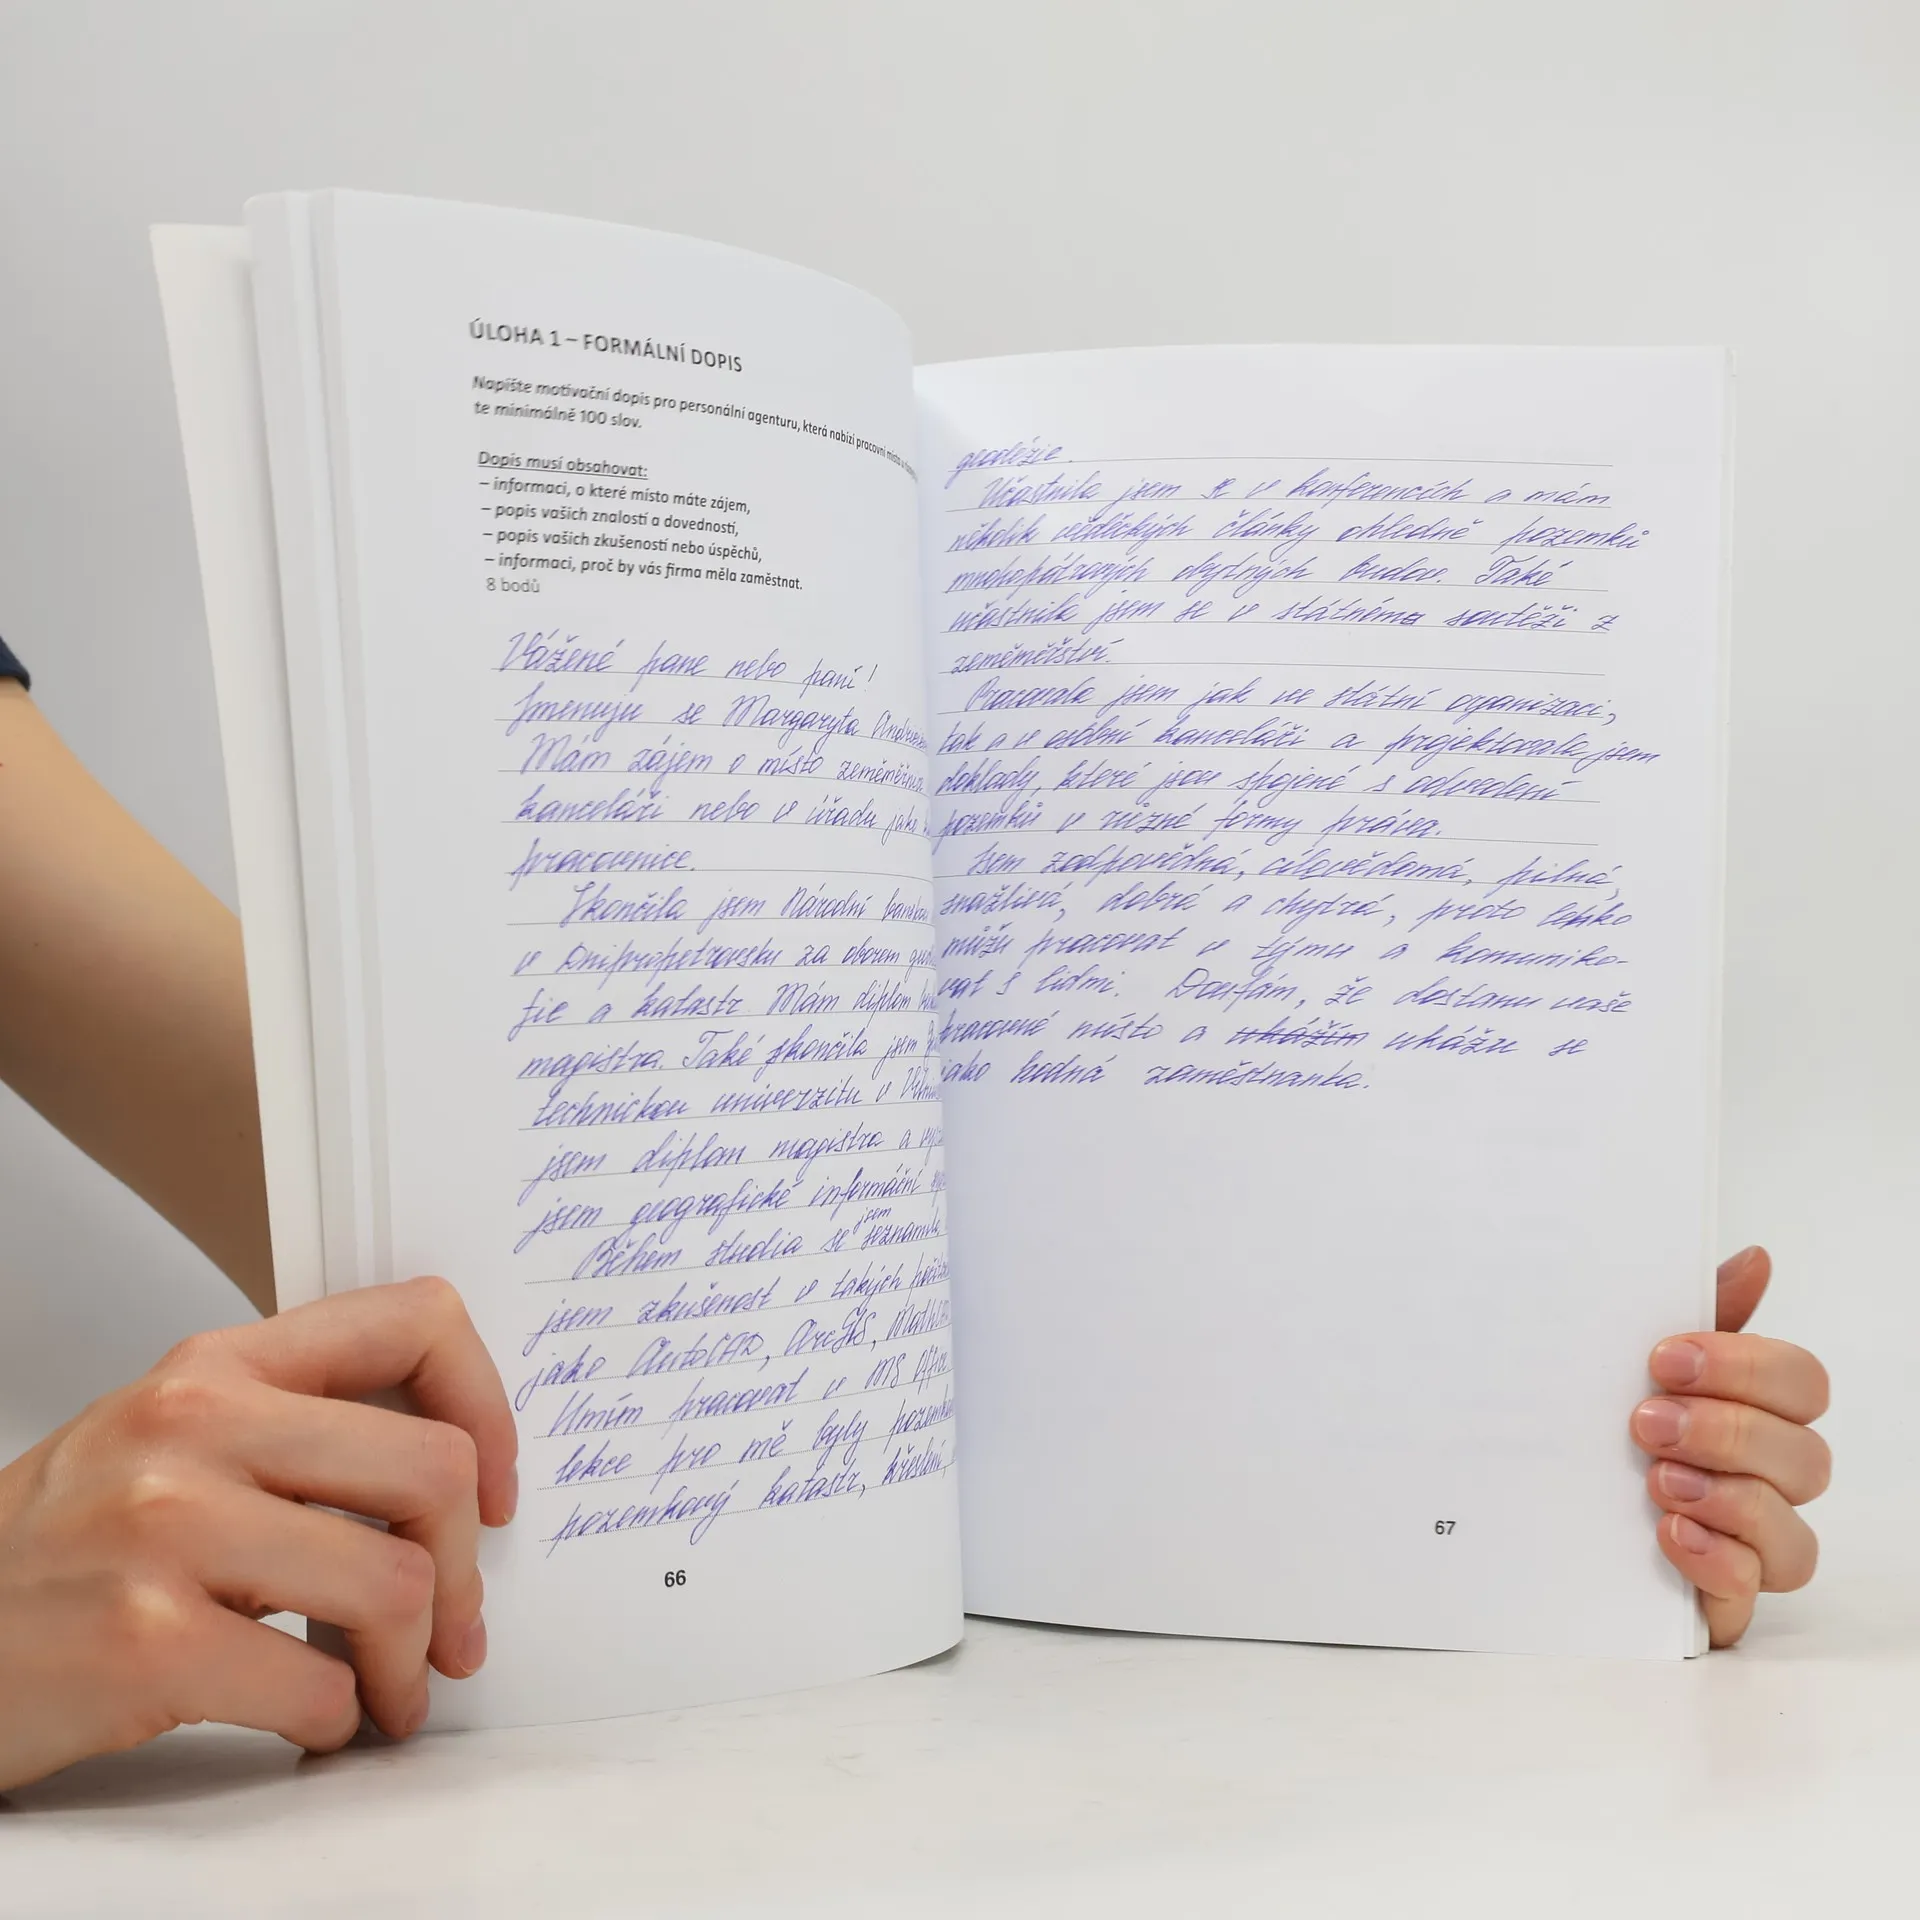 ÚLOHA 1 – FORMÁLNÍ DOPIS
Napište motivační dopis pro personální agenturu, která nabízí pracovní místa v
te minimálně 100 slov.
Dopis musí obsahovat:
– informaci, o které místo máte zájem,
– popis vašich znalostí a dovedností,
– popis vašich zkušeností nebo úspěchů,
– informaci, proč by vás firma měla zaměstnat.
8 bodů
Vážené pane nebo paní!
Jmenuju se Margaryta
Mám zájem o místo
kanceláři nebo v úřadu jako
pracovnice.
Skončila jsem Národní
v Dnipropetrovsku za oborem
zie a katastr. Mám diplom
magistra. Také skončila jsem
technickou univerzitu v
jsem diplom magistra a
jsem geografické informační
Během studia se jsem seznamila,
jsem zkušenost v takých
jako AutoCAD, ArcGIS, MathCAD
Umím pracovat v MS Office
lekce pro mě byly
pozemkový katastr, křeslení,
66
geodézie.
Učastnila jsem se v konferencích a mám
několik vědéckých články ohledně pozemků
mnohopátrových obytných budov. Také
učastnila jsem se v státnéma soutěži z
zeměměřství.
Pracovala jsem jak ve státní organizaci,
tak a v osóbní kanceláři a projektovala jsem
doklady, které jsou spojené s odvedení
pozemků v různé formy práva.
Jsem zodpovědná, cílevědomá, pilná,
snažlivá, dobrá a chytrá, proto lehko
můžu pracovat v týmu a komuniko-
vat s lidmi. Doufám, že dostanu vaše
pracovné místo a ukážim ukážu se
jako hodná zaměstnanka.
67